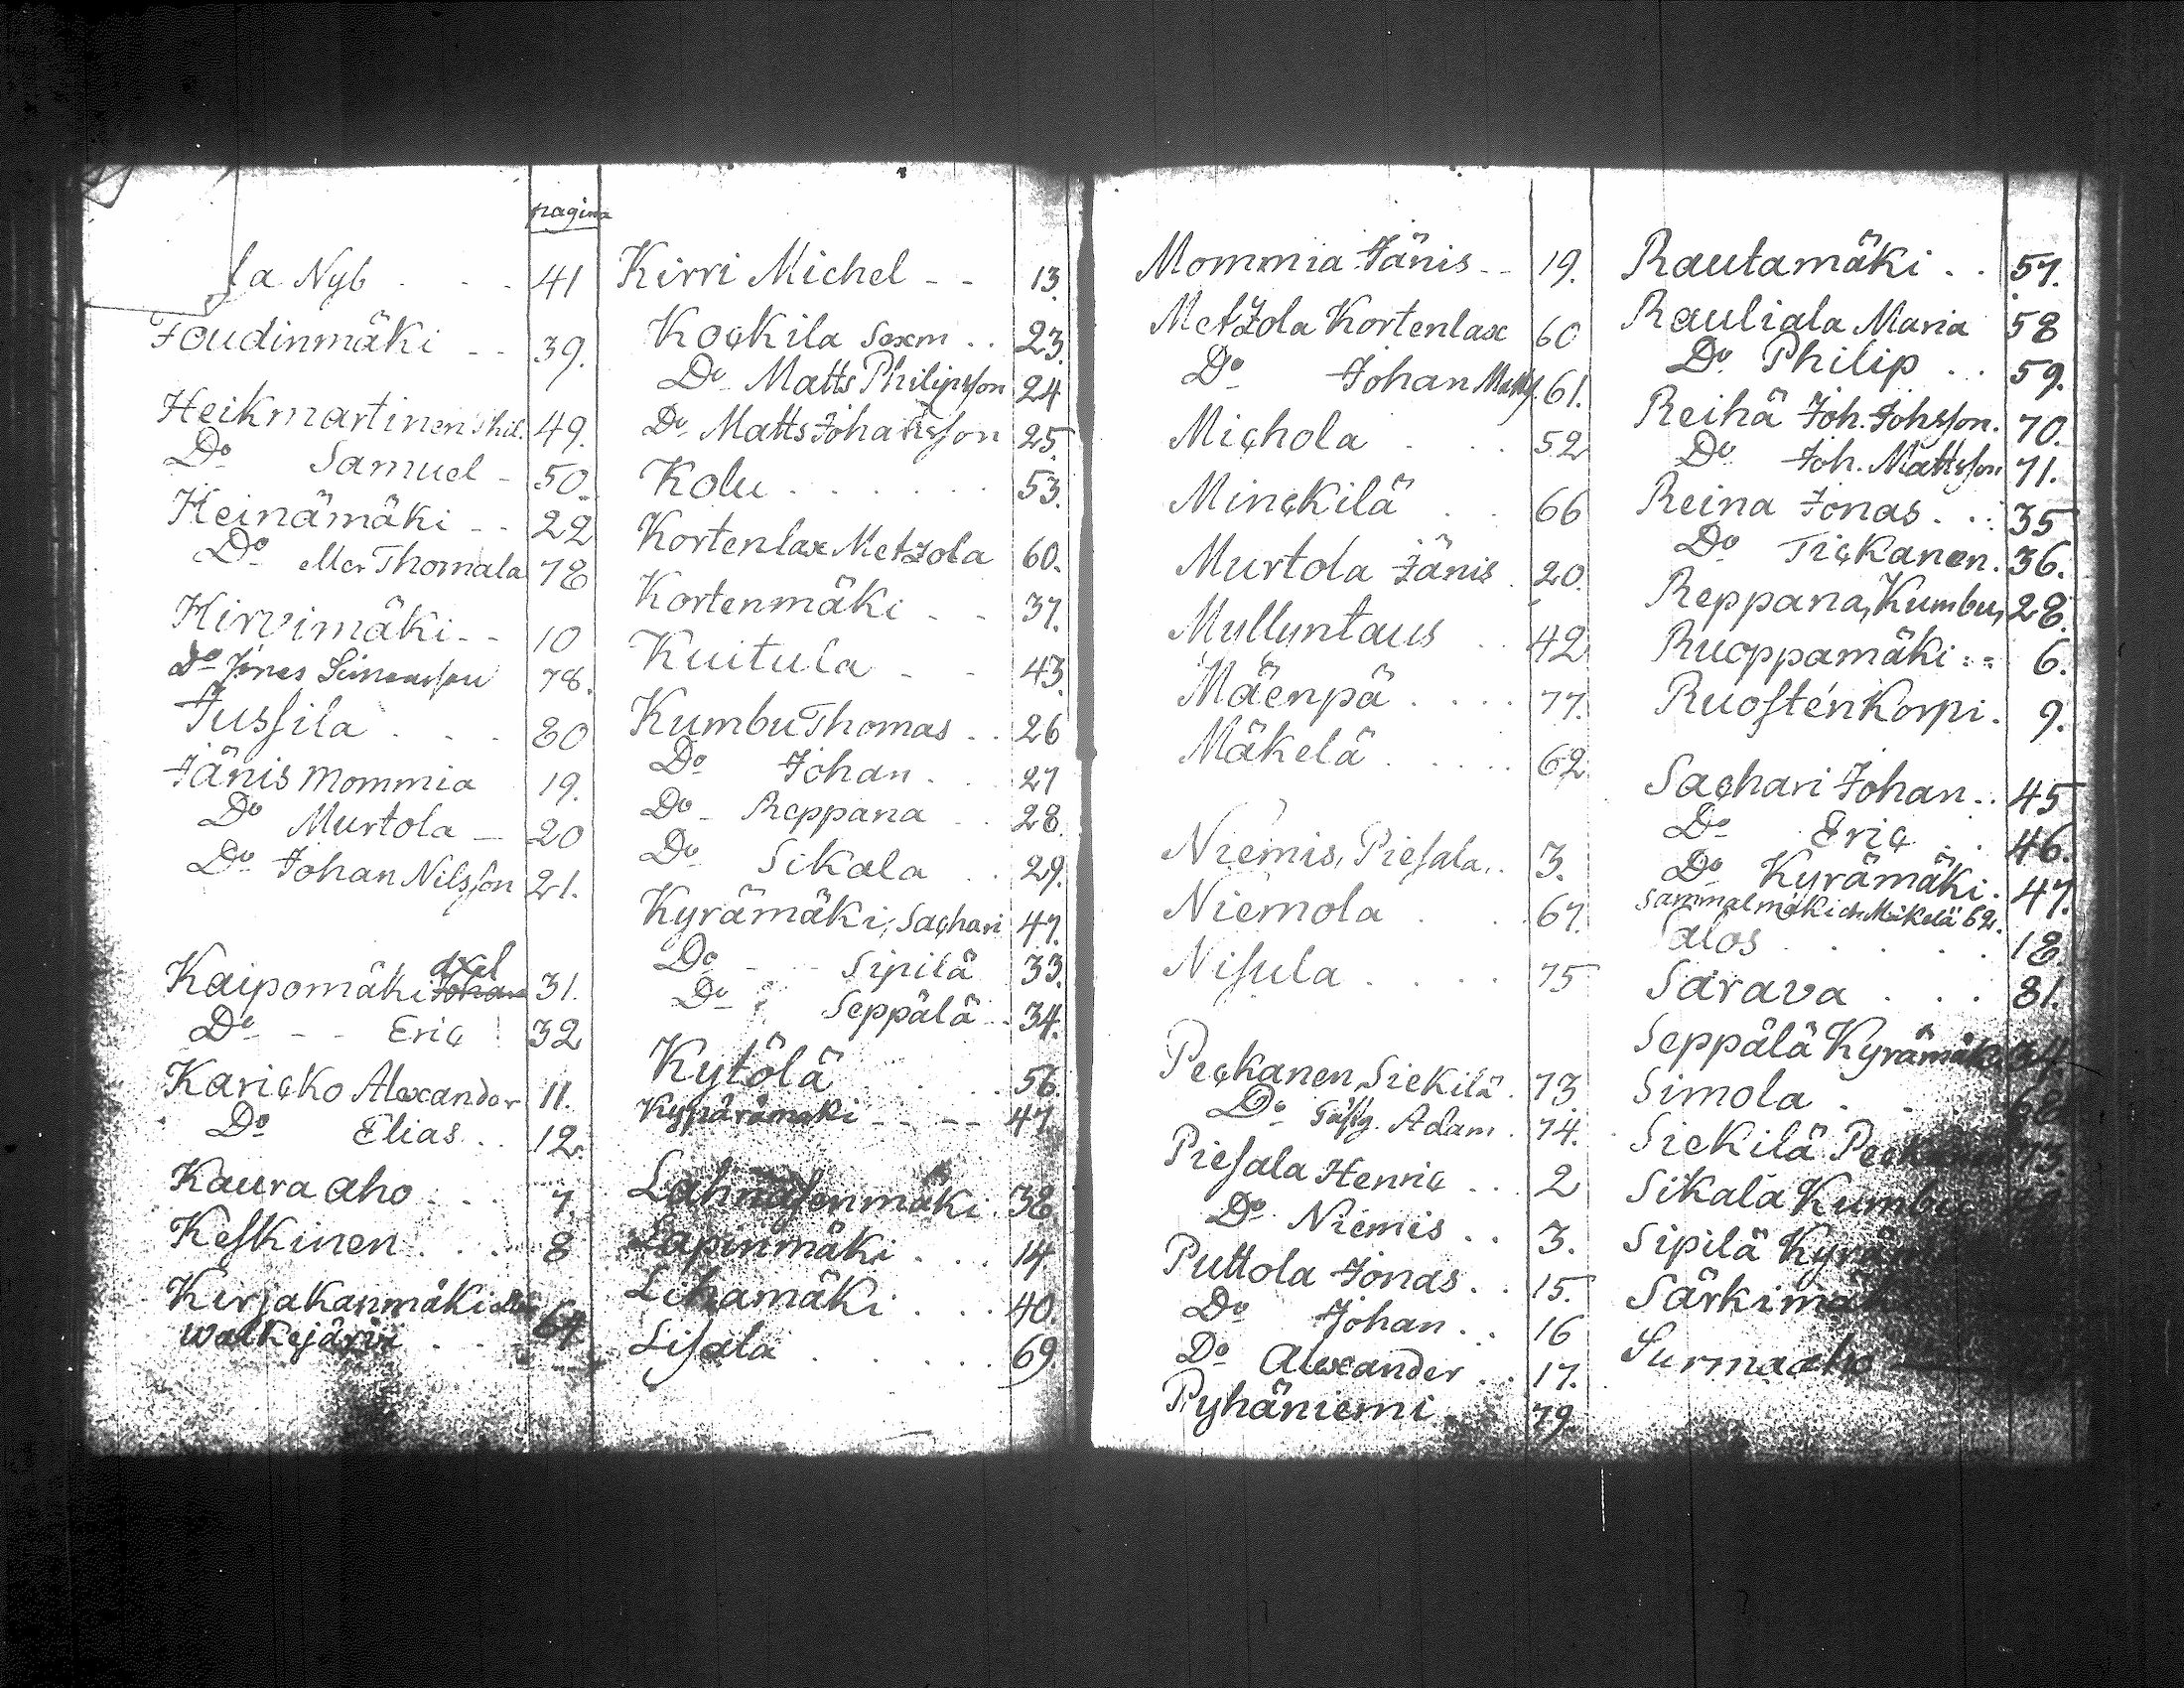 pagina
la Nyb . . . 41
Joudinmäki - - 39.
Heikmartinen Phil. 49.
Do Samuel - 50.
Heinämäki - - 22
Do eller Thomala 78
Hirvimäki - - 10
Do Jonas Simonsson 78.
Jussila . . . 80
Jänis Mommia 19.
Do Murtola - 20
Do Johan Nilsson 21.
Axel
Kaipomäki Johan 31.
Do - - Eric 32
Karicko Alexander 11.
Do Elias . . 12.
Kaura aho . . . 7.
Keskinen . . . 8
Kirjakanmäki eller
Walkejärvi . . 64.
Kirri Michel - - 13.
Kockila Sexm . . 23.
Do Matts Philipsson 24
Do Matts Johansson 25.
Kolu . . . . . . 53.
Kortenlax Metzola 60.
Kortenmäki - - 37.
Kuitula - - 43.
Kumbu Thomas . . 26
Do Johan . . . 27
Do - Reppana - . 28.
Do Sikala . . 29.
Kyrämäki, Sachari 47.
Do - - Sipilä 33.
Do Seppälä . . 34.
Kytölä . . . . 56.
Kypärämäki - - - - 47.
Lahnasenmäki . 38.
Lapinmäki . . . 14
Lihamäki . . . 40.
Lisala . . . . . 69.
Mommia Jänis - - 19.
Metzola Kortenlax 60
Do Johan Matts. 61.
Michola . . . 52
Minckilä . . 66
Murtola Jänis . 20.
Mulluntaus . . 42
Mäenpä . . . . 77.
Mäkelä . . . . . 62.
Niemis, Piesala . . 3.
Niemola . . . . 67.
Nisula . . . . . 75
Peckanen Siekilä . 73
Do Adam . 74.
Piesala Henric . . . 2
Do Niemis . . 3.
Puttola Jonas . . 15.
Do Johan . . 16
Do Alexander . . 17.
Pyhäniemi . 79
Rautamäki . . 57.
Rauliala Maria 58
Do Philip . . . 59.
Reihä Joh. Johsson. 70.
Do Joh. Mattsson 71.
Reina Jonas . . . 35
Do Tickanen . 36.
Reppana, Kumbu, 28.
Ruoppamäki . . 6.
Ruostenkorpi . 9.
Sachari Johan . . 45
Do Eric . . 46.
Do Kyrämäki . 47.
Sammalmäki eller Mäkelä 62.
Salos . . . . . . 18.
Sarava . . . 81.
Seppälä Kyrämäki 34.
Simola . . 68
Siekilä Peckanen 73.
Sikala Kumbu
Sipilä
Särkimäki
Surmaaho